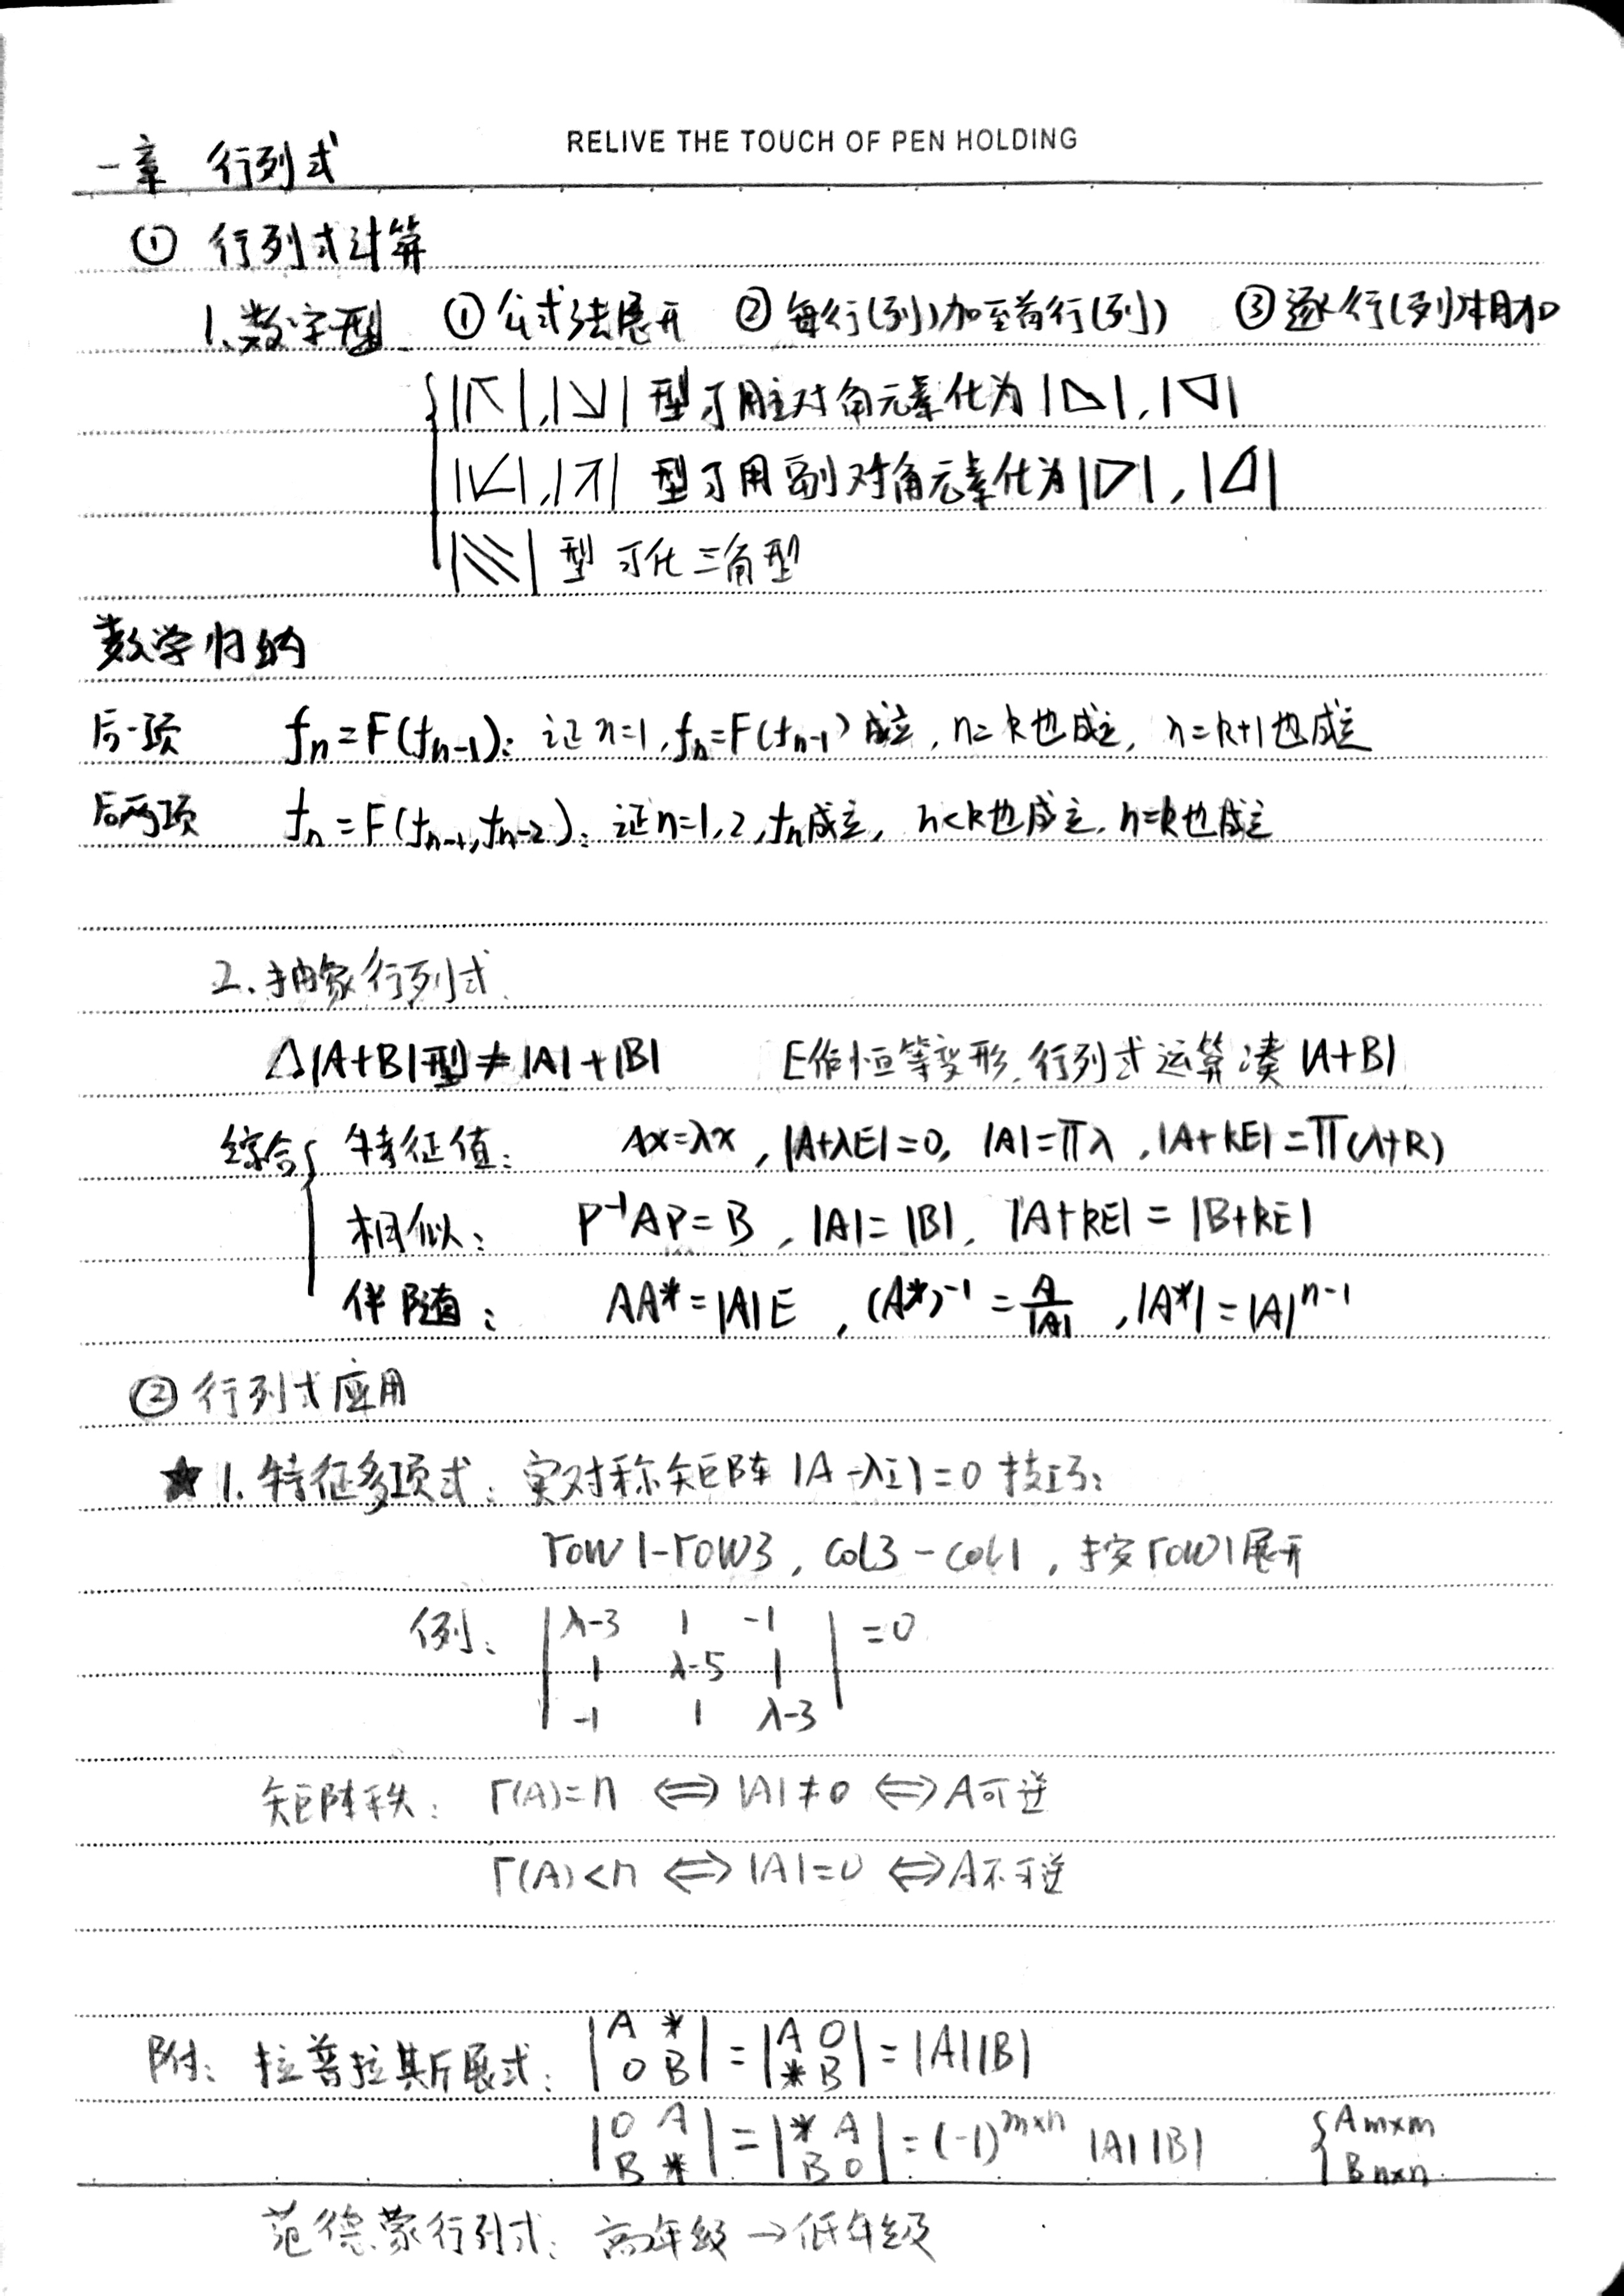 RELIVE THE TOUCH OF PEN HOLDING
一章 行列式
① 行列式计算
1.数字型 ①公式法展开 ②每行(列)加至首行(列) ③逐行(列)相加
型可用主对角元素化为
型可用副对角元素化为
型可化三角型
数学归纳
后一项 fn=F(fn-1): 证n=1,fn=F(fn-1)成立, n=k也成立, n=k+1也成立
后两项 fn=F(fn-1,fn-2): 证n=1,2,fn成立, n<k也成立, n=k也成立
2.抽象行列式
△|A+B|型≠|A|+|B| E作恒等变形,行列式运算凑|A+B|
综合{ 特征值: Ax=λx, |A+λE|=0, |A|=∏λ, |A+kE|=∏(λ+k)
相似: P⁻¹AP=B, |A|=|B|, |A+kE|=|B+kE|
伴随: AA*=|A|E, (A*)⁻¹=A/|A|, |A*|=|A|ⁿ⁻¹
② 行列式应用
★1.特征多项式: 实对称矩阵|A-λI|=0技巧:
row1-row3, col3-col1, 按row1展开
例: | λ-3 1 -1 | =0
| 1 λ-5 1 |
| -1 1 λ-3 |
矩阵秩: r(A)=n ⟺ |A|≠0 ⟺ A可逆
r(A)<n ⟺ |A|=0 ⟺ A不可逆
附: 拉普拉斯展式: |A *; 0 B| = |A 0; * B| = |A||B|
|0 A; B *| = |* A; B 0| = (-1)^{m×n} |A||B| { A m×m
B n×n
范德蒙行列式: 高年级→低年级